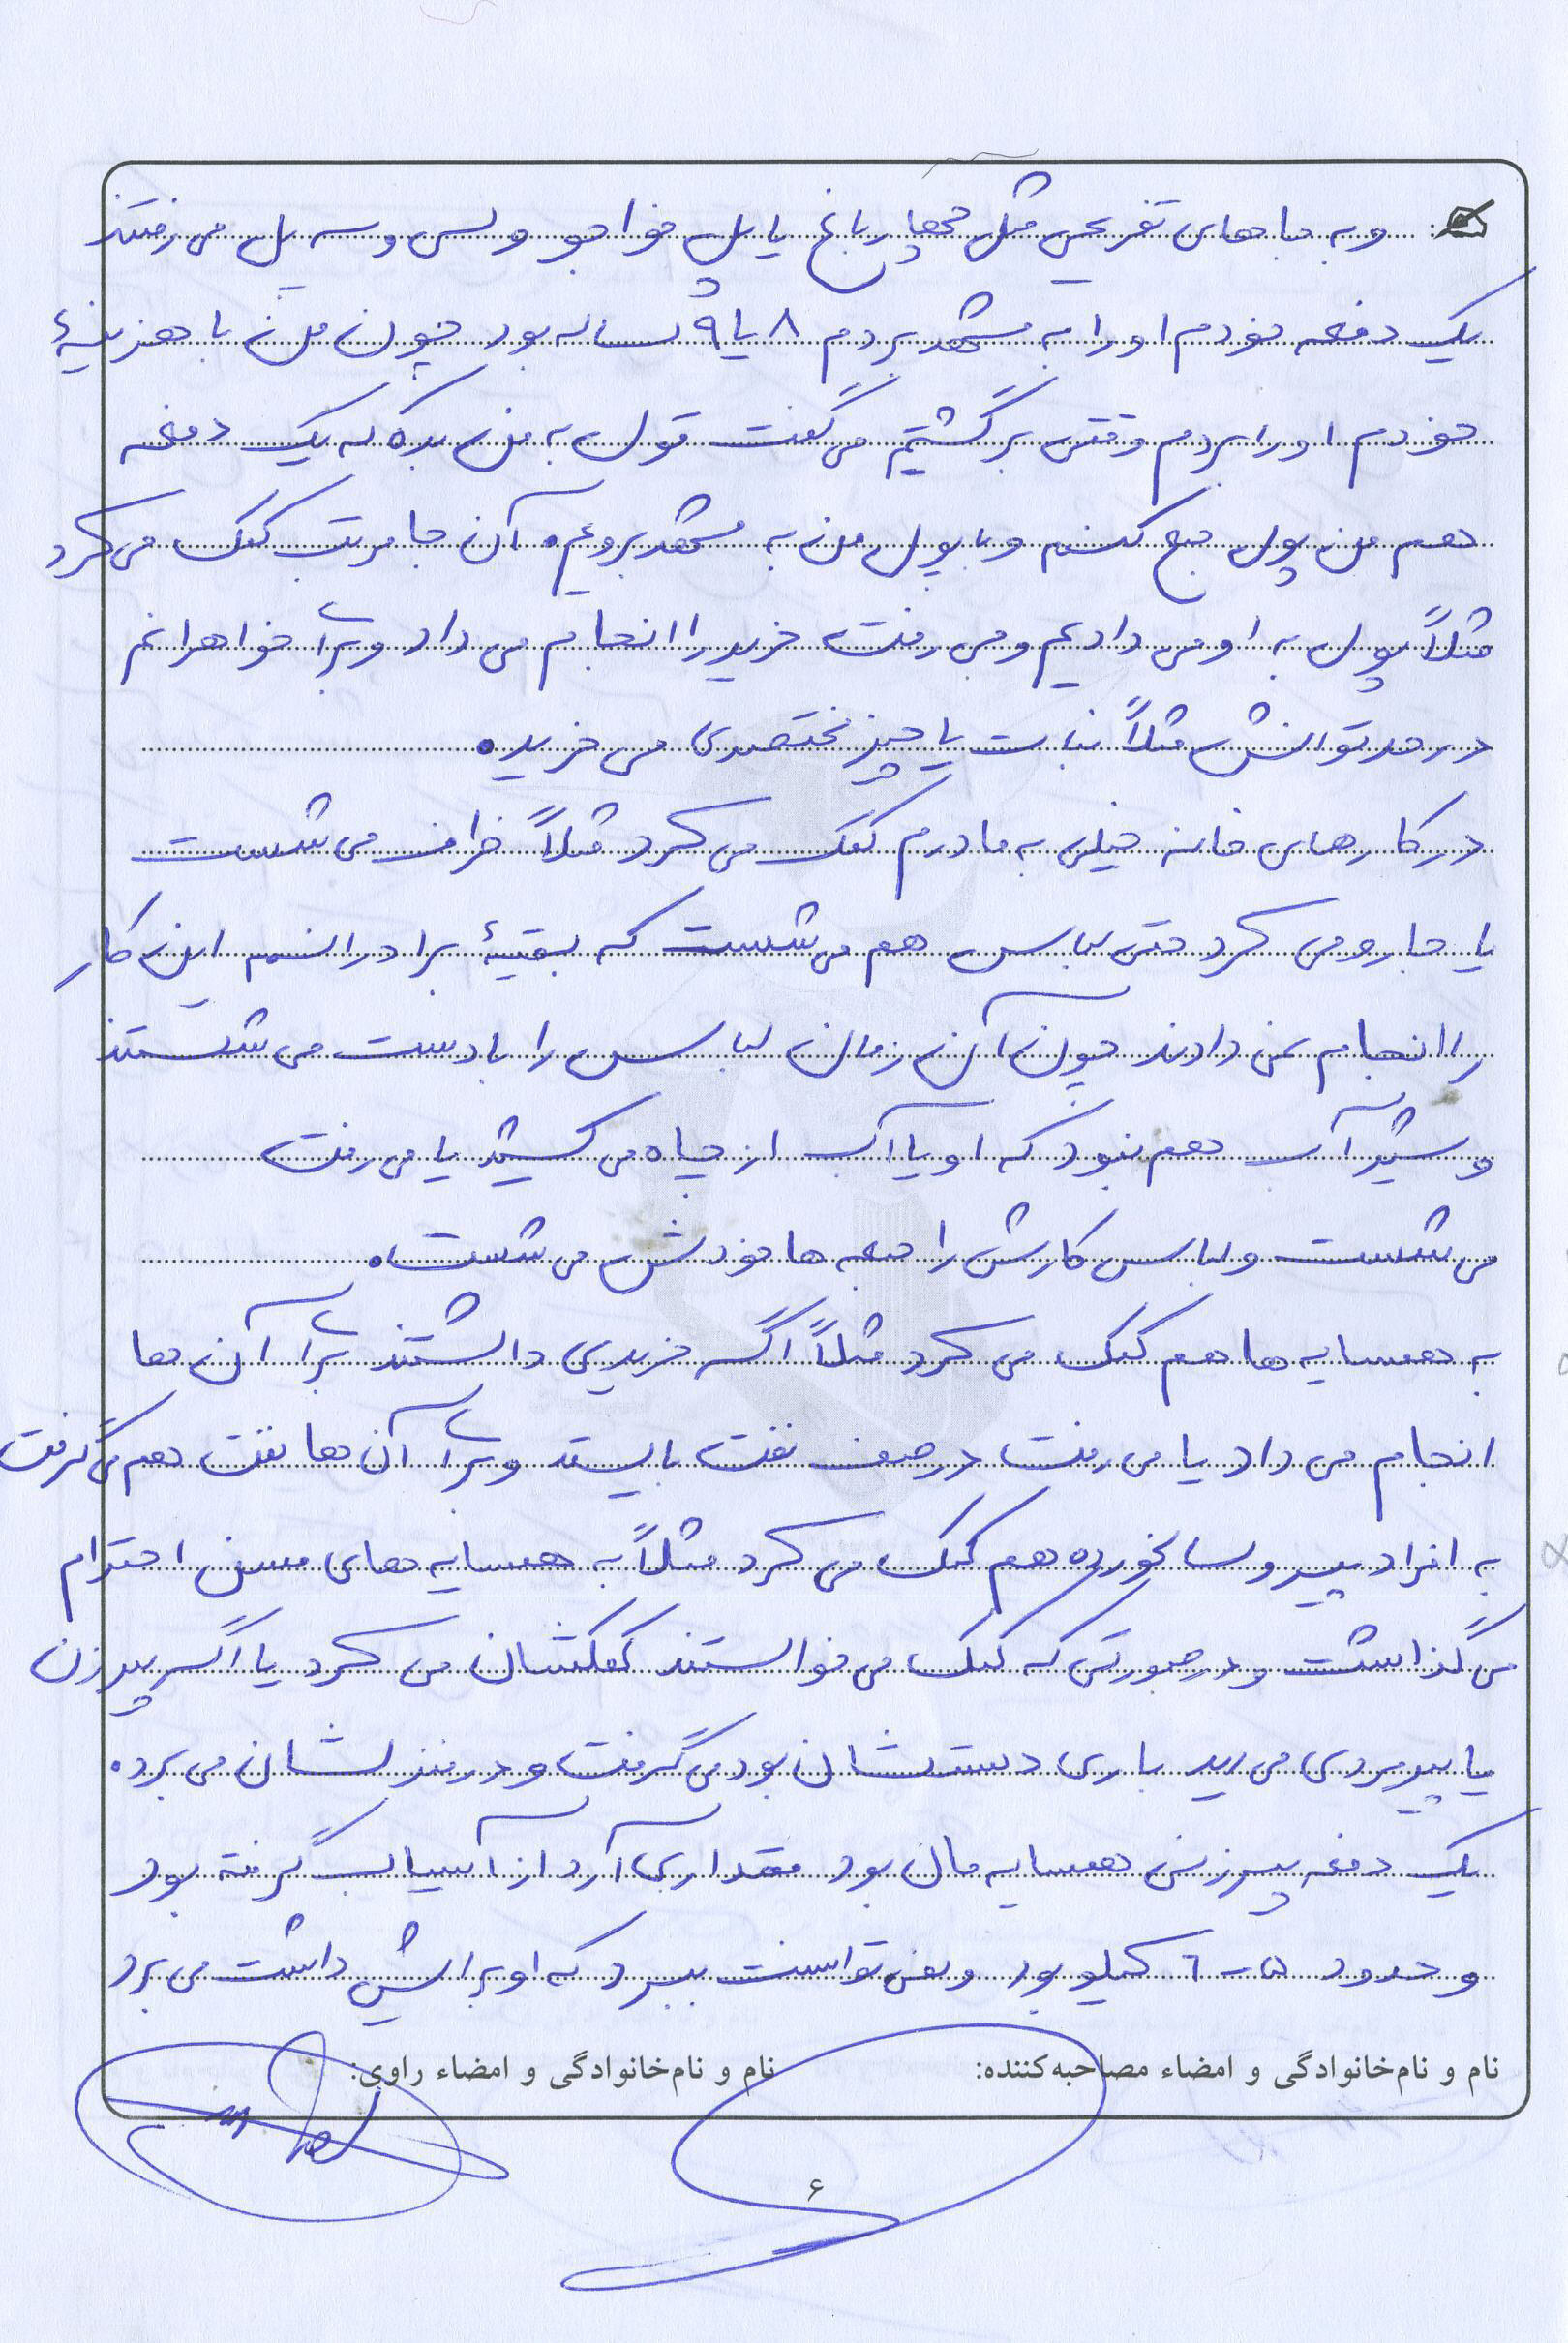 و به جاهای تفریحی مثل چهارباغ یا پل خواجو و سی و سه پل می رفتند
یک دفعه خودم او را به مشهد بردم ۸ یا ۹ ساله بود چون من با هزینهٔ
خودم او را بردم وقتی برگشتیم می گفت قول به من بده که یک دفعه
هم من پول جمع کنم و با پول من به مشهد برویم. آن جا مرتب کمک می کرد
مثلاً پول به او می دادیم و می رفت خرید را انجام می داد و برای خواهرانم
در حد توانش مثلاً نبات یا چیز مختصری می خرید.
در کارهای خانه خیلی به مادرم کمک می کرد مثلاً ظرف می شست
یا جارو می کرد حتی لباس هم می شست که بقیهٔ برادرانم این کار
را انجام نمی دادند چون آن زمان لباس را با دست می شستند
و شیر آب هم نبود که او یا آب از چاه می کشید یا می رفت
می شست و لباس کارش را جمعه ها خودش می شست.
به همسایه ها هم کمک می کرد مثلاً اگر خریدی داشتند برای آن ها
انجام می داد یا می رفت در صف نفت بایستد و برای آن ها نفت هم می گرفت
به افراد پیر و سالخورده هم کمک می کرد مثلاً به همسایه های مسن احترام
می گذاشت و در صورتی که کمک می خواستند کمکشان می کرد یا اگر پیرزن
یا پیرمردی می دید باری دستشان بود می گرفت و در منزلشان می برد.
یک دفعه پیرزنی همسایه مان بود مقداری آرد از آسیاب گرفته بود
و حدود ۵-۶ کیلو بود و نمی توانست ببرد که او برایش داشت می برد
نام و نام‌خانوادگی و امضاء مصاحبه‌کننده: نام و نام‌خانوادگی و امضاء راوی:
۶